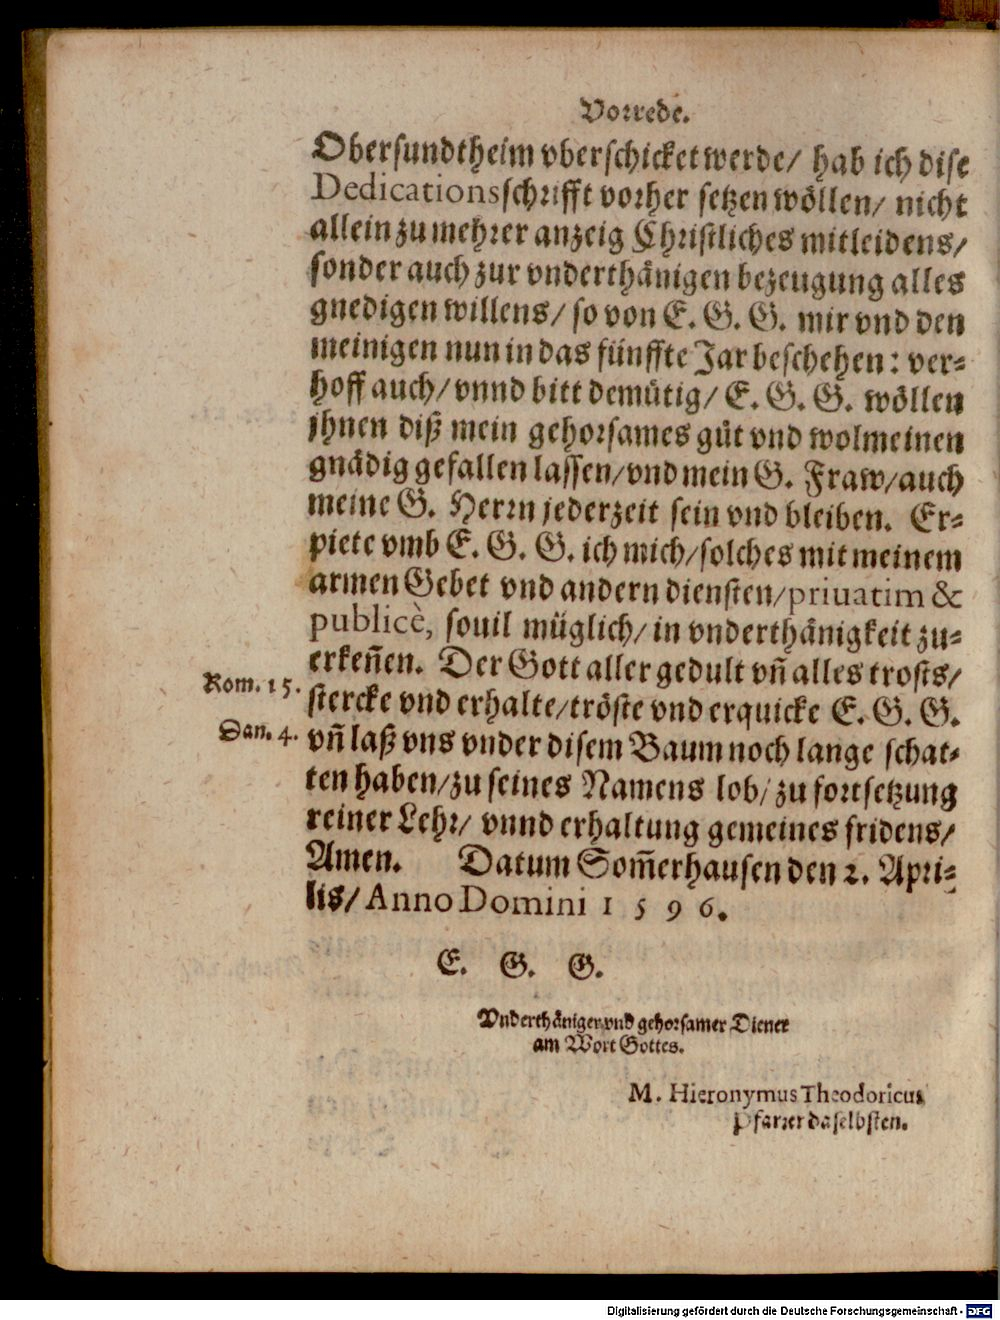 Vorrede.
Obersundtheim vberschicket werde/ hab ich dise
Dedicationsschrifft vorher setzen wöllen/ nicht
allein zu mehrer anzeig Christliches mitleidens/
sonder auch zur vnderthänigen bezeugung alles
gnedigen willens/ so von E. G. G. mir vnd den
meinigen nun in das fünffte Jar beschehen: ver-
hoff auch/ vnnd bitt demütig/ E. G. G. wöllen
jhnen diß mein gehorsames güt vnd wolmeinen
gnädig gefallen lassen/ vnd mein G. Fraw/ auch
meine G. Herrn jederzeit sein vnd bleiben. Er-
piete vmb E. G. G. ich mich/ solches mit meinem
armen Gebet vnd andern diensten/ priuatim &
publicè, souil müglich/ in vnderthänigkeit zu-
erkeñen. Der Gott aller gedult vñ alles trosts/
Rom. 15. stercke vnd erhalte/ tröste vnd erquicke E. G. G.
Dan. 4. vñ laß vns vnder disem Baum noch lange schat-
ten haben/ zu seines Namens lob/ zu fortsetzung
reiner Lehr/ vnnd erhaltung gemeines fridens/
Amen. Datum Som̃erhausen den 2. Apri-
lis/ Anno Domini 1596.
E. G. G.
Vnderthäniger vnd gehorsamer Diener
am Wort Gottes.
M. Hieronymus Theodoricus
Pfarrer daselbsten.
Digitalisierung gefördert durch die Deutsche Forschungsgemeinschaft - DFG